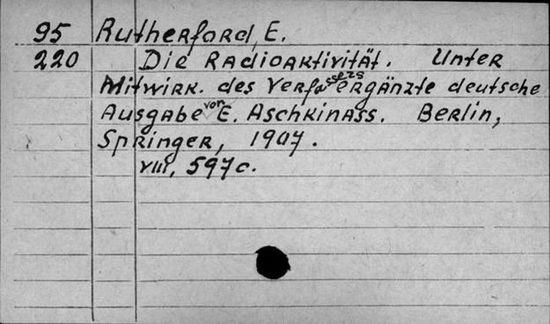 95 Rutherford, E.
220 Die Radioaktivität. Unter
Mitwirk. des Verfassers ergänzte deutsche
Ausgabe von E. Aschkinass. Berlin,
Springer, 1907.
VIII, 597 c.